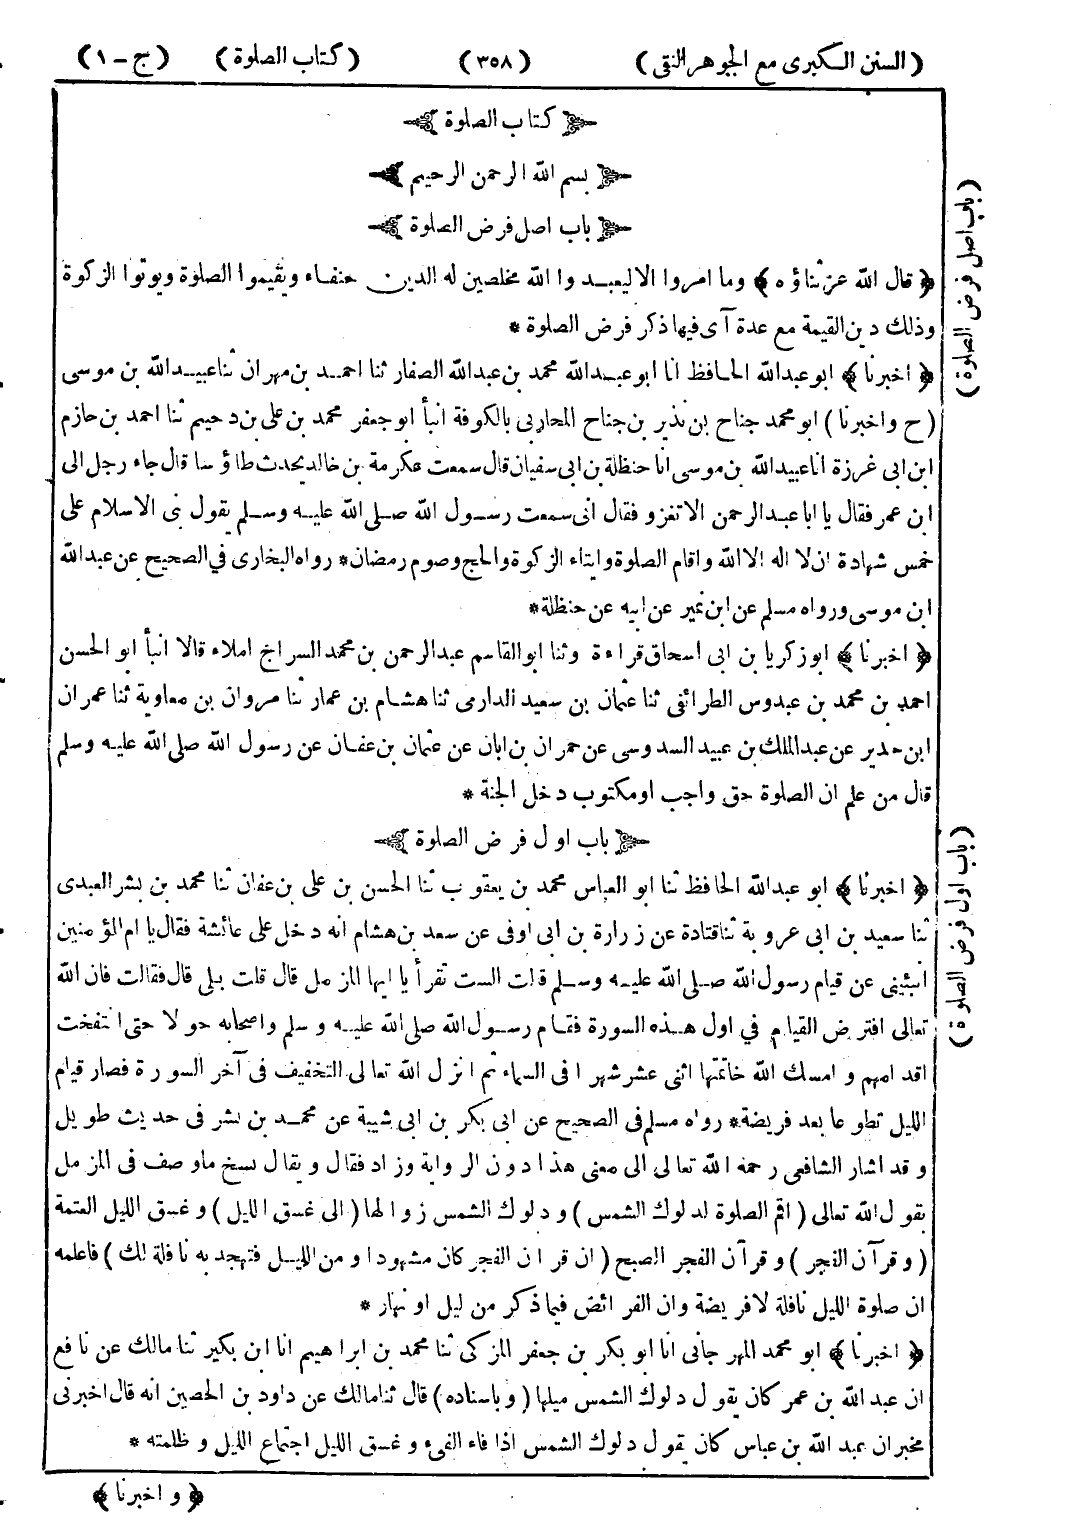 (السنن الكبرى مع الجوهر النقى) (٣٥٨) (كتاب الصلوة) (ج - ١)
كتاب الصلوة
بسم الله الرحمن الرحيم
باب اصل فرض الصلوة
(باب اصل فرض الصلوة)
﴿ قال الله عز ثناؤه ﴾ وما امروا الا ليعبدوا الله مخلصين له الدين حنفاء ويقيموا الصلوة ويوتوا الزكوة
وذلك دين القيمة مع عدة آى فيها ذكر فرض الصلوة *
﴿ اخبرنا ﴾ ابو عبدالله الحافظ انا ابو عبدالله محمد بن عبدالله الصفار ثنا احمد بن مهران ثنا عبيدالله بن موسى
(ح واخبرنا) ابو محمد جناح بن نذير بن جناح المحاربى بالكوفة انبأ ابو جعفر محمد بن على بن دحيم ثنا احمد بن حازم
ابن ابى غرزة انا عبيدالله بن موسى انا حنظلة بن ابى سفيان قال سمعت عكرمة بن خالد يحدث طاؤسا قال جاء رجل الى
ابن عمر فقال يا ابا عبدالرحمن الا تغزو فقال انى سمعت رسول الله صلى الله عليه وسلم يقول بنى الاسلام على
خمس شهادة ان لا اله الا الله واقام الصلوة وايتاء الزكوة والحج وصوم رمضان * رواه البخارى في الصحيح عن عبدالله
ابن موسى ورواه مسلم عن ابن نمير عن ابيه عن حنظلة *
﴿ اخبرنا ﴾ ابو زكريا بن ابى اسحاق قراءة وثنا ابو القاسم عبدالرحمن بن محمد السراج املاء قالا انبأ ابو الحسن
احمد بن محمد بن عبدوس الطرائفى ثنا عثمان بن سعيد الدارمى ثنا هشام بن عمار ثنا مروان بن معاوية ثنا عمران
ابن حدير عن عبدالملك بن عبيد السدوسى عن حمران بن ابان عن عثمان بن عفان عن رسول الله صلى الله عليه وسلم
قال من علم ان الصلوة حق واجب او مكتوب دخل الجنة *
باب اول فرض الصلوة
(باب اول فرض الصلوة)
﴿ اخبرنا ﴾ ابو عبدالله الحافظ ثنا ابو العباس محمد بن يعقوب ثنا الحسن بن على بن عفان ثنا محمد بن بشر العبدى
ثنا سعيد بن ابى عروبة ثنا قتادة عن زرارة بن ابى اوفى عن سعد بن هشام انه دخل على عائشة فقال يا ام المؤمنين
انبئينى عن قيام رسول الله صلى الله عليه وسلم قالت الست تقرأ يا ايها المزمل قال قلت بلى قال فقالت فان الله
تعالى افترض القيام في اول هذه السورة فقام رسول الله صلى الله عليه وسلم واصحابه حولا حتى انتفخت
اقدامهم وامسك الله خاتمتها اثنى عشر شهرا فى السماء ثم انزل الله تعالى التخفيف فى آخر السورة فصار قيام
الليل تطوعا بعد فريضة * رواه مسلم فى الصحيح عن ابى بكر بن ابى شيبة عن محمد بن بشر فى حديث طويل
وقد اشار الشافعى رحمه الله تعالى الى معنى هذا دون الرواية وزاد فقال ويقال نسخ ما وصف فى المزمل
بقول الله تعالى (اقم الصلوة لدلوك الشمس) ودلوك الشمس زوالها (الى غسق الليل) وغسق الليل العتمة
(وقرآن الفجر) وقرآن الفجر الصبح (ان قران الفجر كان مشهودا ومن الليل فتهجد به نافلة لك) فاعلمه
ان صلوة الليل نافلة لا فريضة وان الفرائض فيما ذكر من ليل او نهار *
﴿ اخبرنا ﴾ ابو محمد المهرجانى انا ابو بكر بن جعفر المزكى ثنا محمد بن ابراهيم انا ابن بكير ثنا مالك عن نافع
ان عبدالله بن عمر كان يقول دلوك الشمس ميلها (وباسناده) قال ثنا مالك عن داود بن الحصين انه قال اخبرنى
مخبر ان عبدالله بن عباس كان يقول دلوك الشمس اذا فاء الفىء وغسق الليل اجتماع الليل وظلمته *
﴿ واخبرنا ﴾